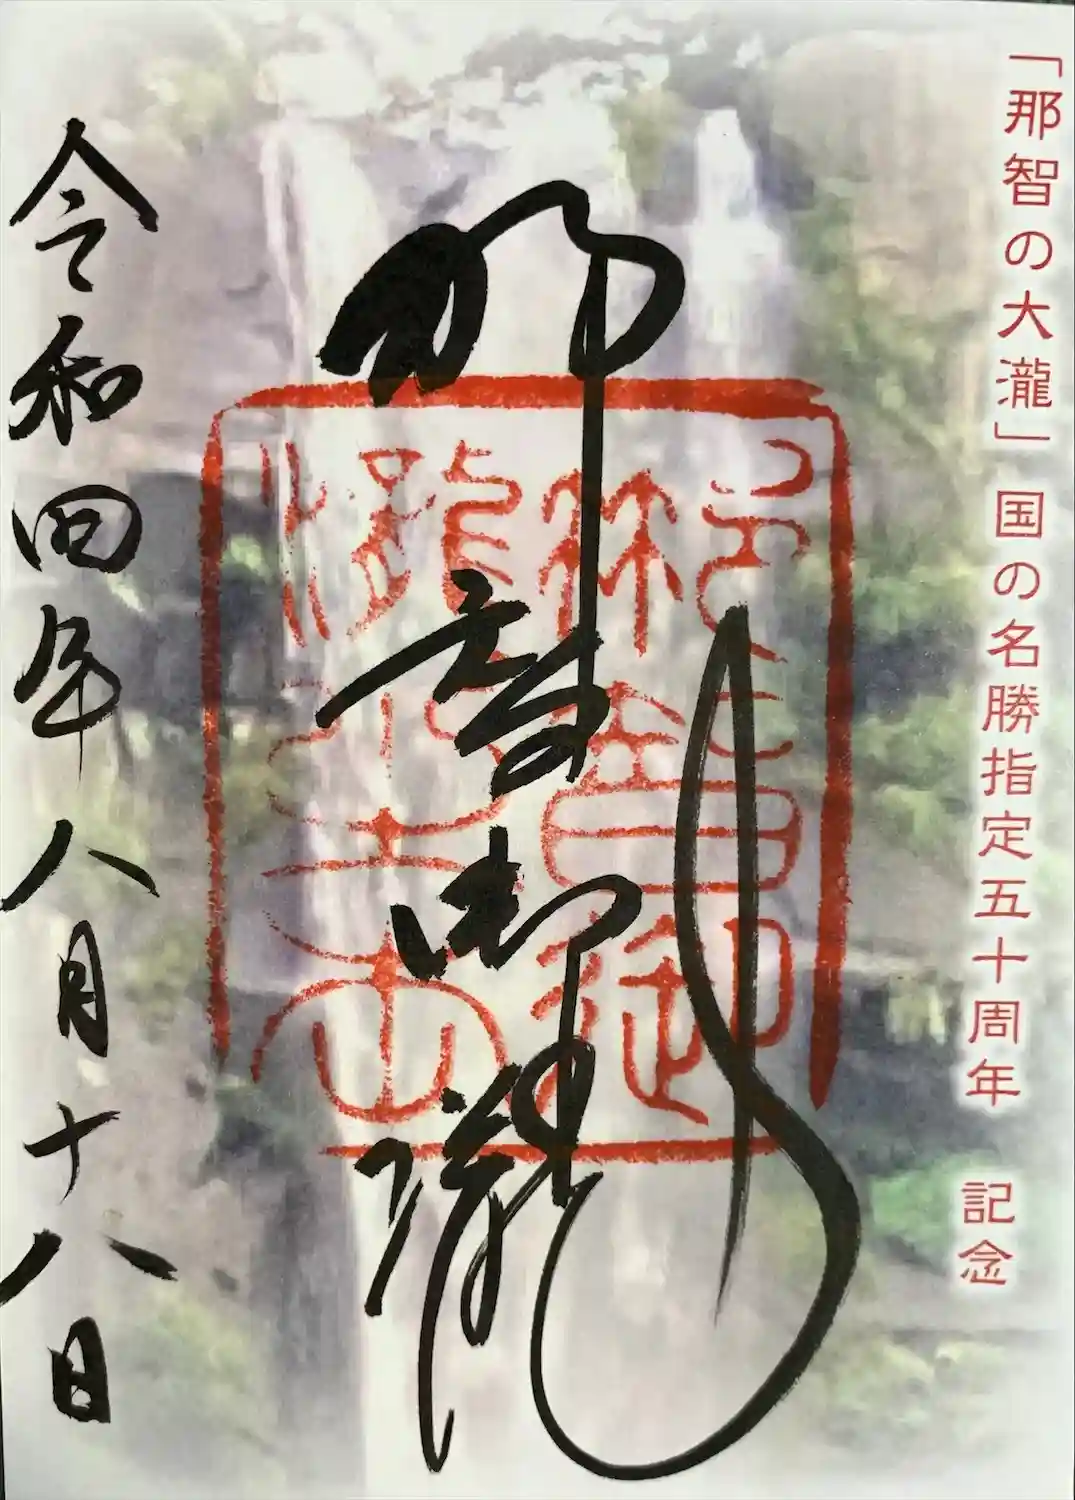 「那智の大瀧」国の名勝指定五十周年 記念
那智御瀧
令和四年八月十八日